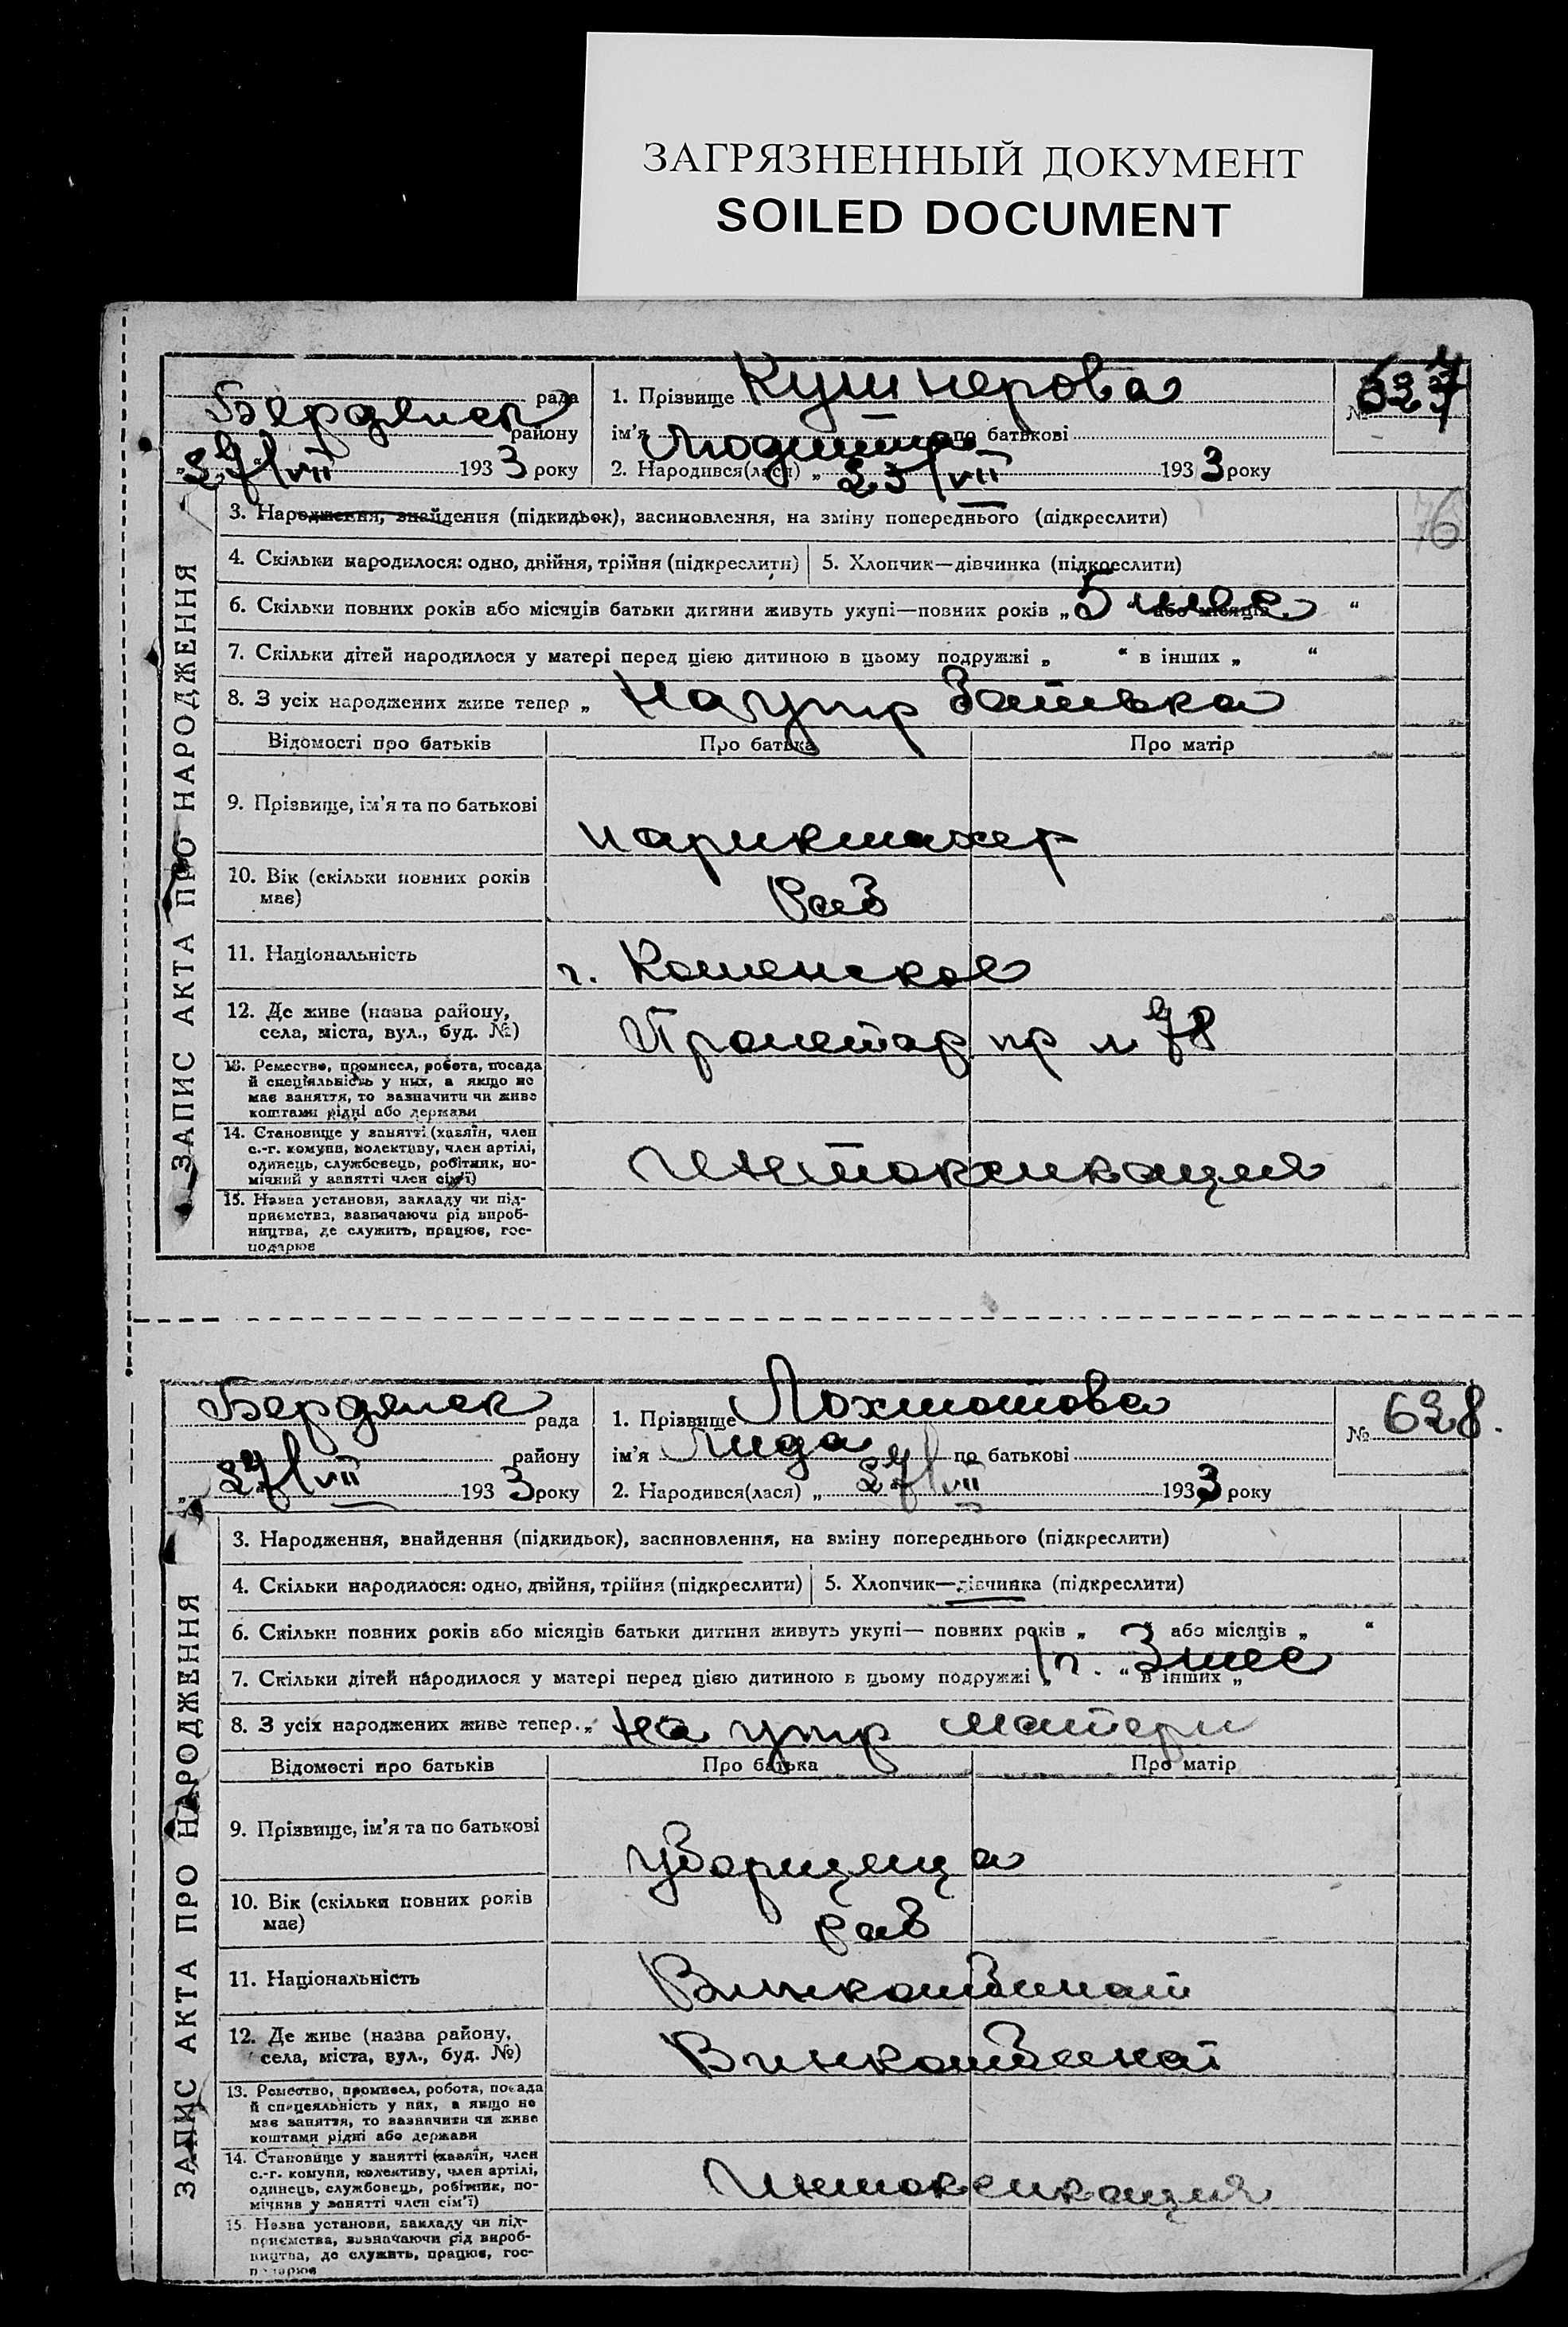 ЗАГРЯЗНЕННЫЙ ДОКУМЕНТ
SOILED DOCUMENT
Бердянск рада
району
27/VII 1933 року
1. Прізвище Кушнерова
ім'я Людмила по батькові
2. Народився(лася) „ 25/VII 1933 року
№ 627
ЗАПИС АКТА ПРО НАРОДЖЕННЯ
3. Народження, знайдення (підкидьок), засиновлення, на зміну попереднього (підкреслити)
76
4. Скільки народилося: одно, двійня, трійня (підкреслити)
5. Хлопчик—дівчинка (підкреслити)
6. Скільки повних років або місяців батьки дитини живуть укупі—повних років „ 5 мес “ або місяців “
7. Скільки дітей народилося у матері перед цією дитиною в цьому подружжі „ “ в інших „ “
8. З усіх народжених живе тепер „ На упр батька
Відомості про батьків
Про батька
Про матір
9. Прізвище, ім'я та по батькові
парикмахер
10. Вік (скільки повних років має)
Раб
11. Національність
г. Каменское
12. Де живе (назва району, села, міста, вул., буд. №)
Пролетар пр № 78
13. Ремество, промисел, робота, посада
й спеціяльність у них, а якщо не
має заняття, то зазначити чи живе
коштами рідні або держави
14. Становище у занятті (хазяїн, член
с.-г. комуни, колективу, член артілі,
одинець, службовець, робітник, по-
мічний у занятті член сім'ї)
Интоксикация
15. Назва установи, закладу чи під-
приємства, зазначаючи рід вироб-
ництва, де служить, працює, гос-
подарює
Бердянск рада
району
27/VII 1933 року
1. Прізвище Лохматова
ім'я Лида по батькові
2. Народився(лася) „ 27/VII 1933 року
№ 628.
ЗАПИС АКТА ПРО НАРОДЖЕННЯ
3. Народження, знайдення (підкидьок), засиновлення, на зміну попереднього (підкреслити)
4. Скільки народилося: одно, двійня, трійня (підкреслити)
5. Хлопчик—дівчинка (підкреслити)
6. Скільки повних років або місяців батьки дитини живуть укупі— повних років „ “ або місяців „ “
7. Скільки дітей народилося у матері перед цією дитиною в цьому подружжі „ 1 г. 3 мес “ в інших „
8. З усіх народжених живе тепер „ На упр матери
Відомості про батьків
Про батька
Про матір
9. Прізвище, ім'я та по батькові
уборщица
10. Вік (скільки повних років має)
раб
11. Національність
Винкомбинат
12. Де живе (назва району, села, міста, вул., буд. №)
Винкомбинат
13. Ремество, промисел, робота, посада
й спецеяльність у них, а якщо не
має заняття, то зазначити чи живе
коштами рідні або держави
14. Становище у занятті (хазяїн, член
с.-г. комуни, колективу, член артілі,
одинець, службовець, робітник, по-
мічний у занятті член сім'ї)
Интоксикация
15. Назва установи, закладу чи під-
приємства, зазначаючи рід вироб-
ництва, де служить, працює, гос-
подарює